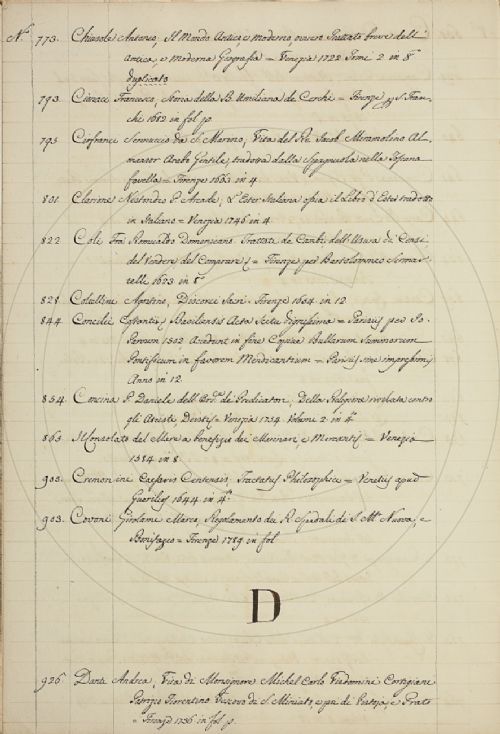 N.º 773. Chiusole Antonio, Il Mondo Antico e moderno, ovvero Trattato breve dell'
antica, e Moderna Geografia = Venezia 1722 Tomi 2 in 8º
duplicato
793 Francesco, Storia della B. Umiliana de Cerchi = Firenze S. Fran-
che 1682 in fol pº
795 da S. Marino, Vita del Re Jacob
Arabo Gentile, tradotta dalla Spagnuola nella Toscana
favella = Firenze 1663 in 4
801 P. Arcade, L'Ester Italiana ossia il Libro d'Ester tradotto
in Italiano = Venezia 1746 in 4
822 Coli Fra Romualdo Domenicano Trattati de Cambi, dell'Usura di Censi
del Vendere del Comprare = Firenze per Bartolommeo Sermar-
telli 1623 in 8º
828 Agostino, Discorsi Sacri. Firenze 1604 in 12
844 Concilii Basiliensis Acta = Parisiis per
1502 in fine Copiosa Bullarum Summorum
Pontificum in favorem Mendicantium = Parisiis sine impressioni,
Anno in 12
854. Concina P. Daniele dell'Ord.e de Predicatori, Della Religione rivelata contro
gli Ateisti, Deisti = Venezia 1754 Volumi 2 in 4º
863. Il Consolato del Mare a benefizio dei Marinari, e Mercanti = Venezia
1584 in 8
900. Cremonine Caesaris Centensis, Tractatus Philosophiae = Venetiis apud
Guerilios 1644 in 4º
903. Covoni Girolamo Marco, Regolamento del R. Spedale di S. M.a Nuova, e
Bonifazio = Firenze 1789 in fol
D
926 Dante Andrea, Vita di Monsignore Michel Carlo Visdomini Cortigiani
Patrizio Fiorentino Vescovo di S. Miniato, e poi di Pistoja, e Prato
= Firenze 1736 in fol pº